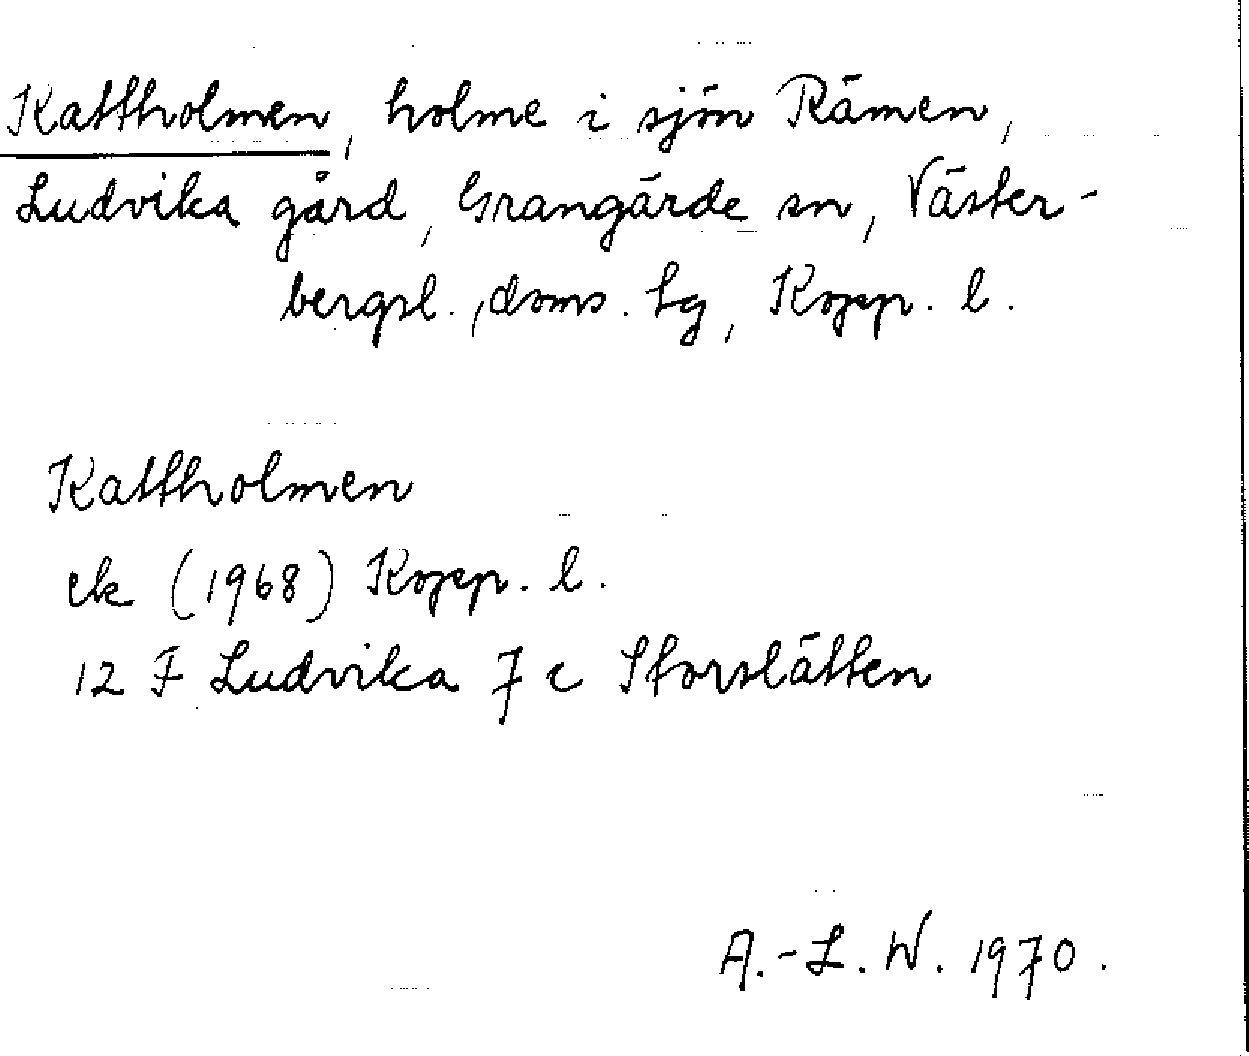 Kattholmen, holme i sjön Rämen,
Ludvika gård, Grangärde sn, Väster-
bergsl., doms. tg, Kopp. l.
Kattholmen
ek (1968) Kopp. l.
12 F Ludvika 7 c Storslätten
A.-L. W. 1970.